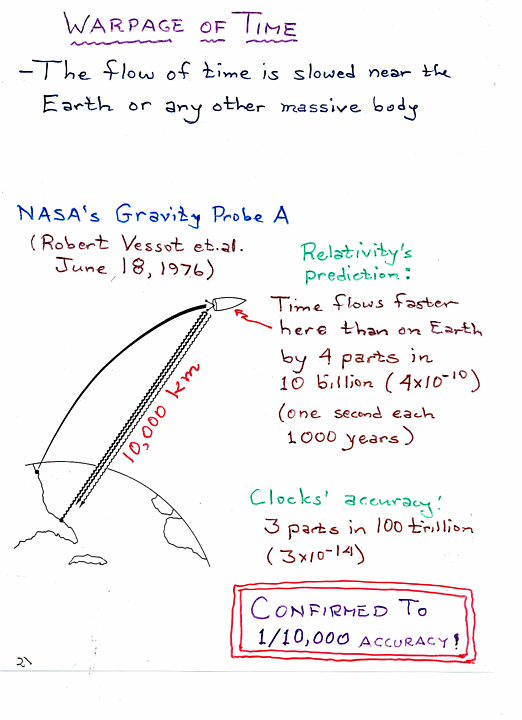 WARPAGE OF TIME
- The flow of time is slowed near the
Earth or any other massive body
NASA's Gravity Probe A
(Robert Vessot et.al.
June 18, 1976)
Relativity's
prediction:
Time flows faster
here than on Earth
by 4 parts in
10 billion (4x10⁻¹⁰)
(one second each
1000 years)
10,000 km
Clocks' accuracy:
3 parts in 100 trillion
(3x10⁻¹⁴)
CONFIRMED TO
1/10,000 ACCURACY!